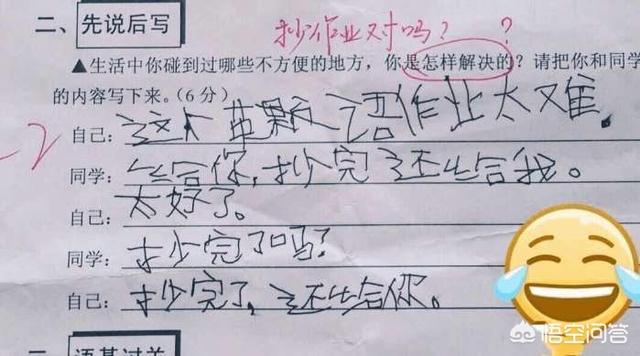 抄作业对吗？ ？
二、先说后写
▲生活中你碰到过哪些不方便的地方，你是怎样解决的？请把你和同学
的内容写下来。（6分）
-2
自己：这 语作业太难。
同学：给你，抄完还给我。
自己：太好了。
同学：抄完了吗？
自己：抄完了，还给你。
语基过关
悟空问答